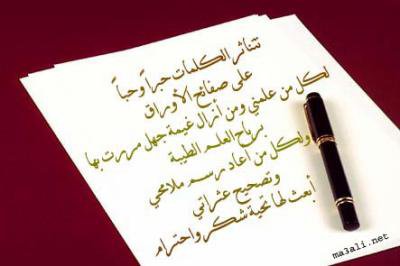 تتناثر الكلمات حبراً وحباً
على صفائح الأوراق
لكل من علمني ومن أزال غيمة جهل مررت بها
برياح العلم الطيبة
ولكل من أعاد رسم ملامحي
وتصحيح عثراتي
أبعث لها تحية شكر واحترام
ma3ali.net